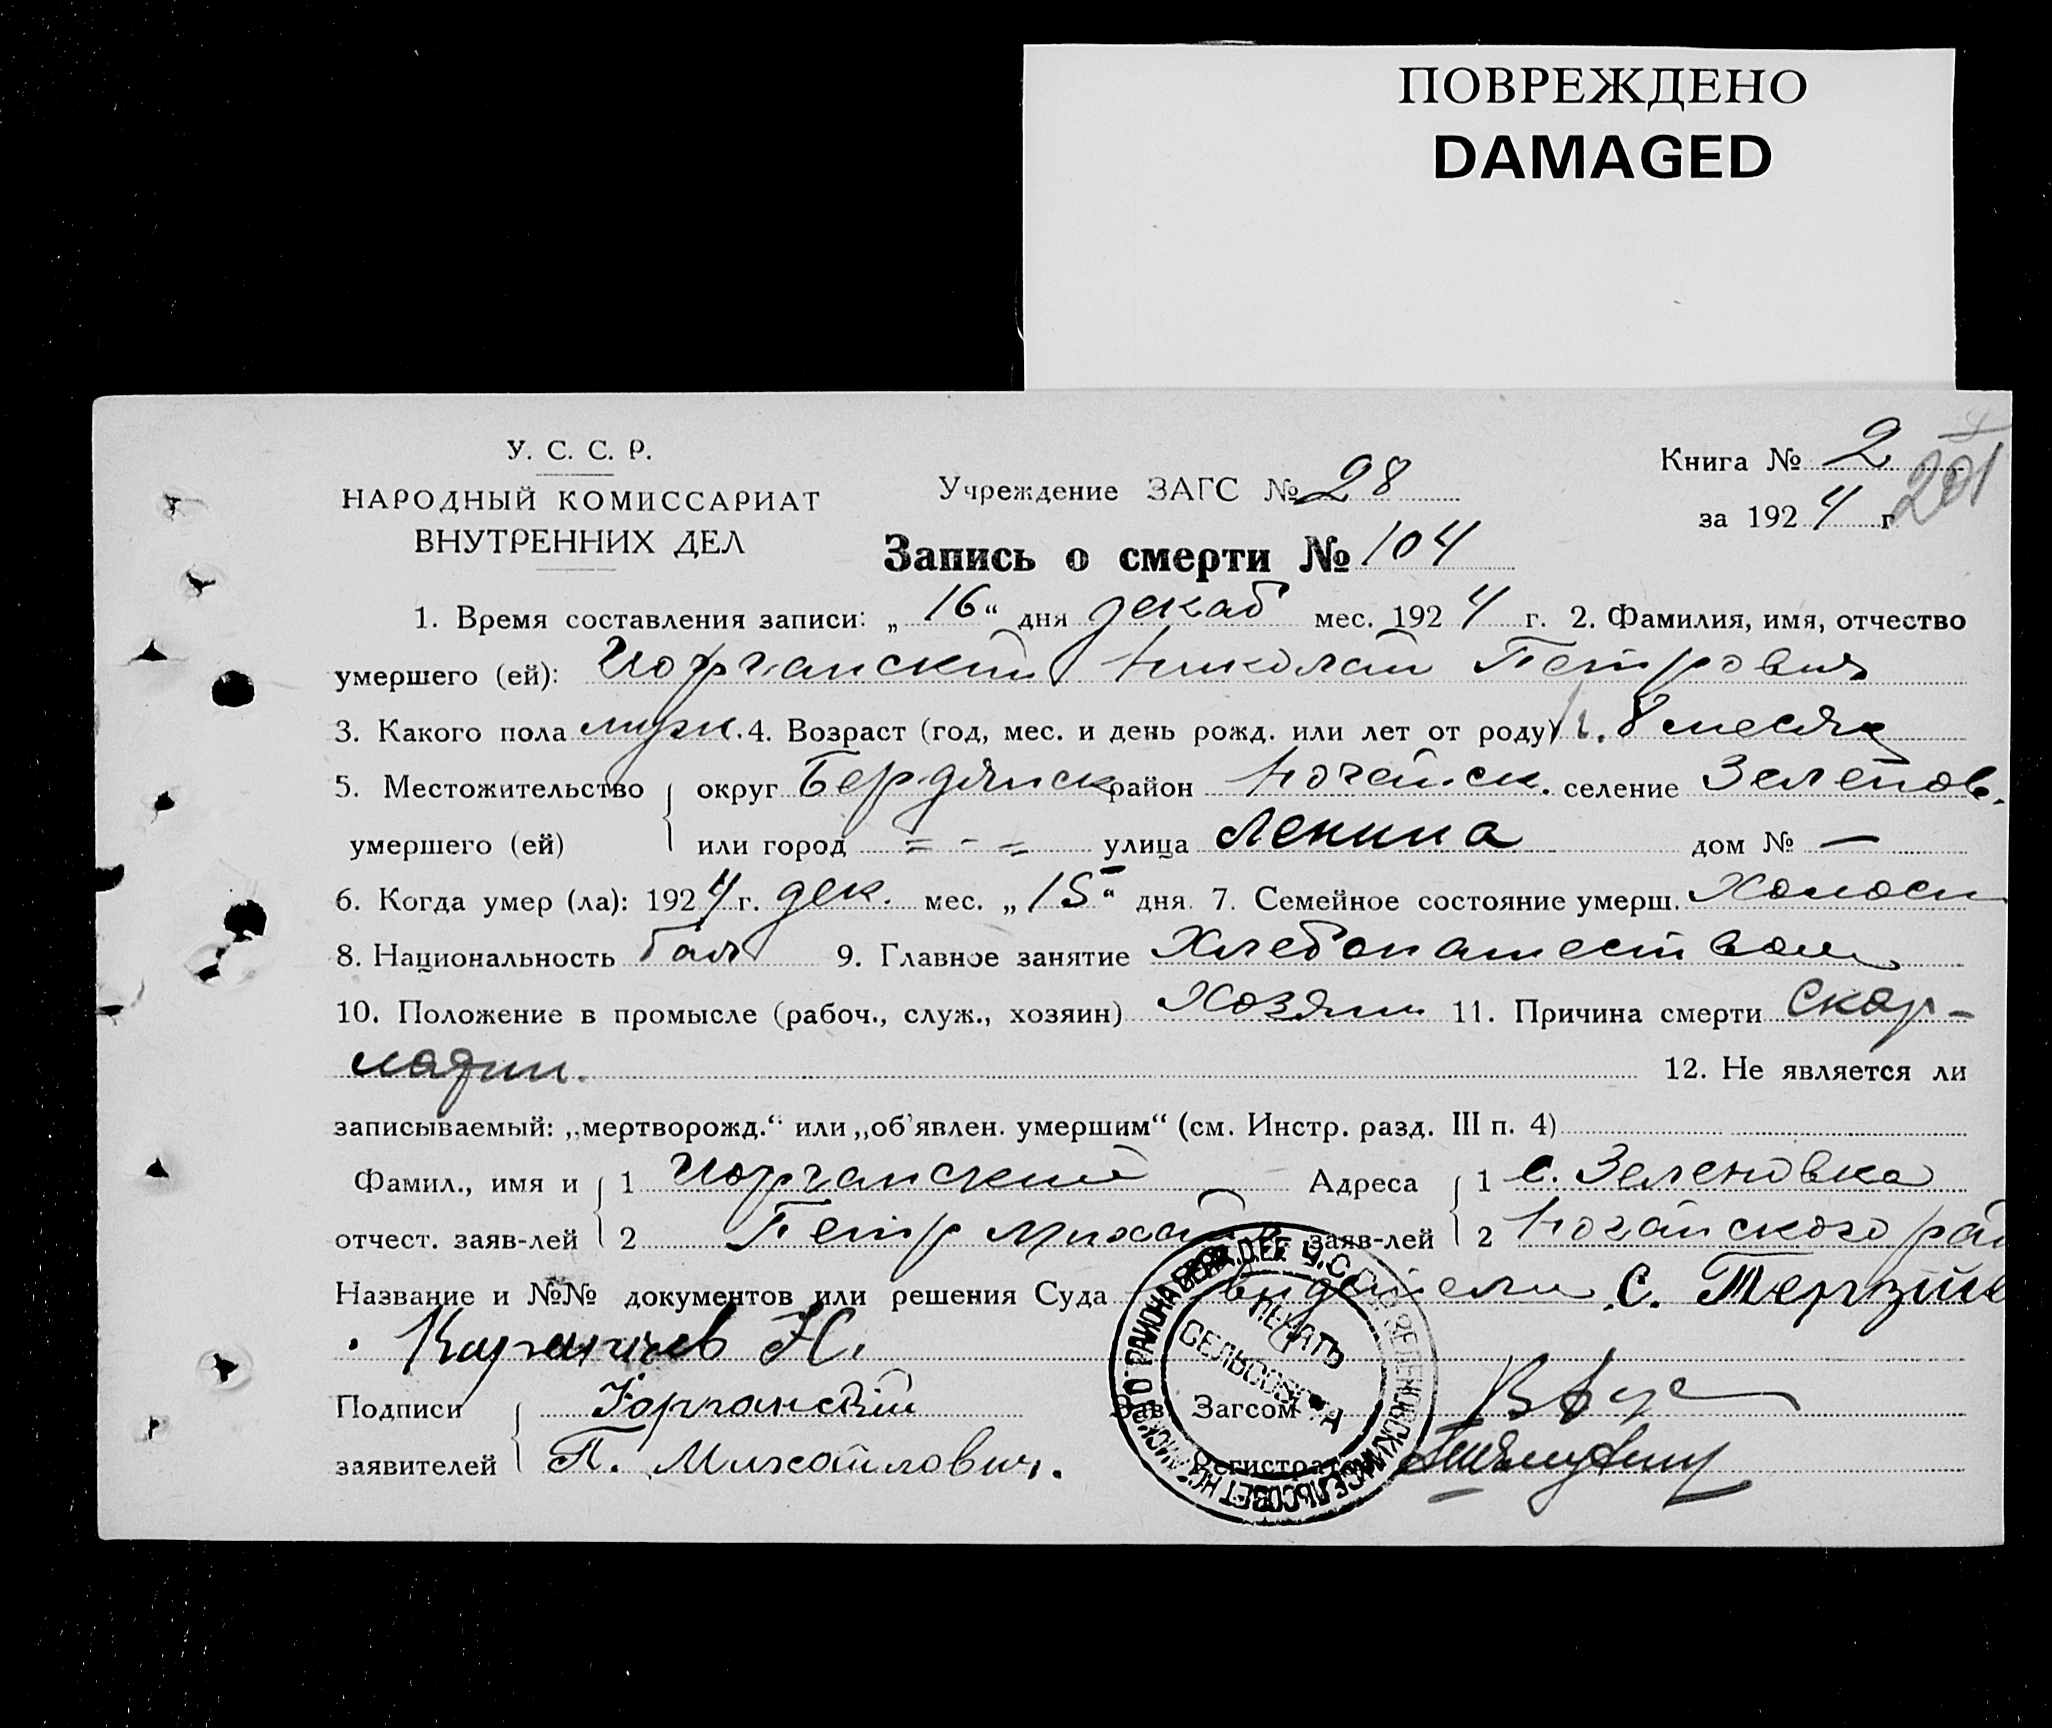 ПОВРЕЖДЕНО
DAMAGED
У. С. С. Р.
НАРОДНЫЙ КОМИССАРИАТ
ВНУТРЕННИХ ДЕЛ
Учреждение ЗАГС № 28
Книга № 2
201
за 1924 г.
Запись о смерти № 104
1. Время составления записи: „16“ дня декаб мес. 1924 г. 2. Фамилия, имя, отчество
умершего (ей): Иорганский Николай Петрович
3. Какого пола муж. 4. Возраст (год, мес. и день рожд. или лет от роду) 8 месяц
5. Местожительство округ Бердянск район Ногайск. селение Зеленов.
умершего (ей) или город = - = улица Ленина дом № —
6. Когда умер (ла): 1924 г. дек. мес. „15“ дня. 7. Семейное состояние умерш. Холост
8. Национальность 9. Главное занятие Хлебопашеством
10. Положение в промысле (рабоч., служ., хозяин) Хозяин 11. Причина смерти Скар-
латин. 12. Не является ли
записываемый: „мертворожд.“ или „об'явлен. умершим“ (см. Инстр. разд. III п. 4)
Фамил., имя и 1 Иорганский Адреса 1 с. Зеленовка
отчест. заяв-лей 2 Петр Михайл заяв-лей 2 Ногайского рай
Название и №№ документов или решения Суда С.
Н.
Подписи Иорганский Зав. Загсом
заявителей П. Михайлович. Регистратор
ПЕЧАТЬ
СЕЛЬСОВЕТА